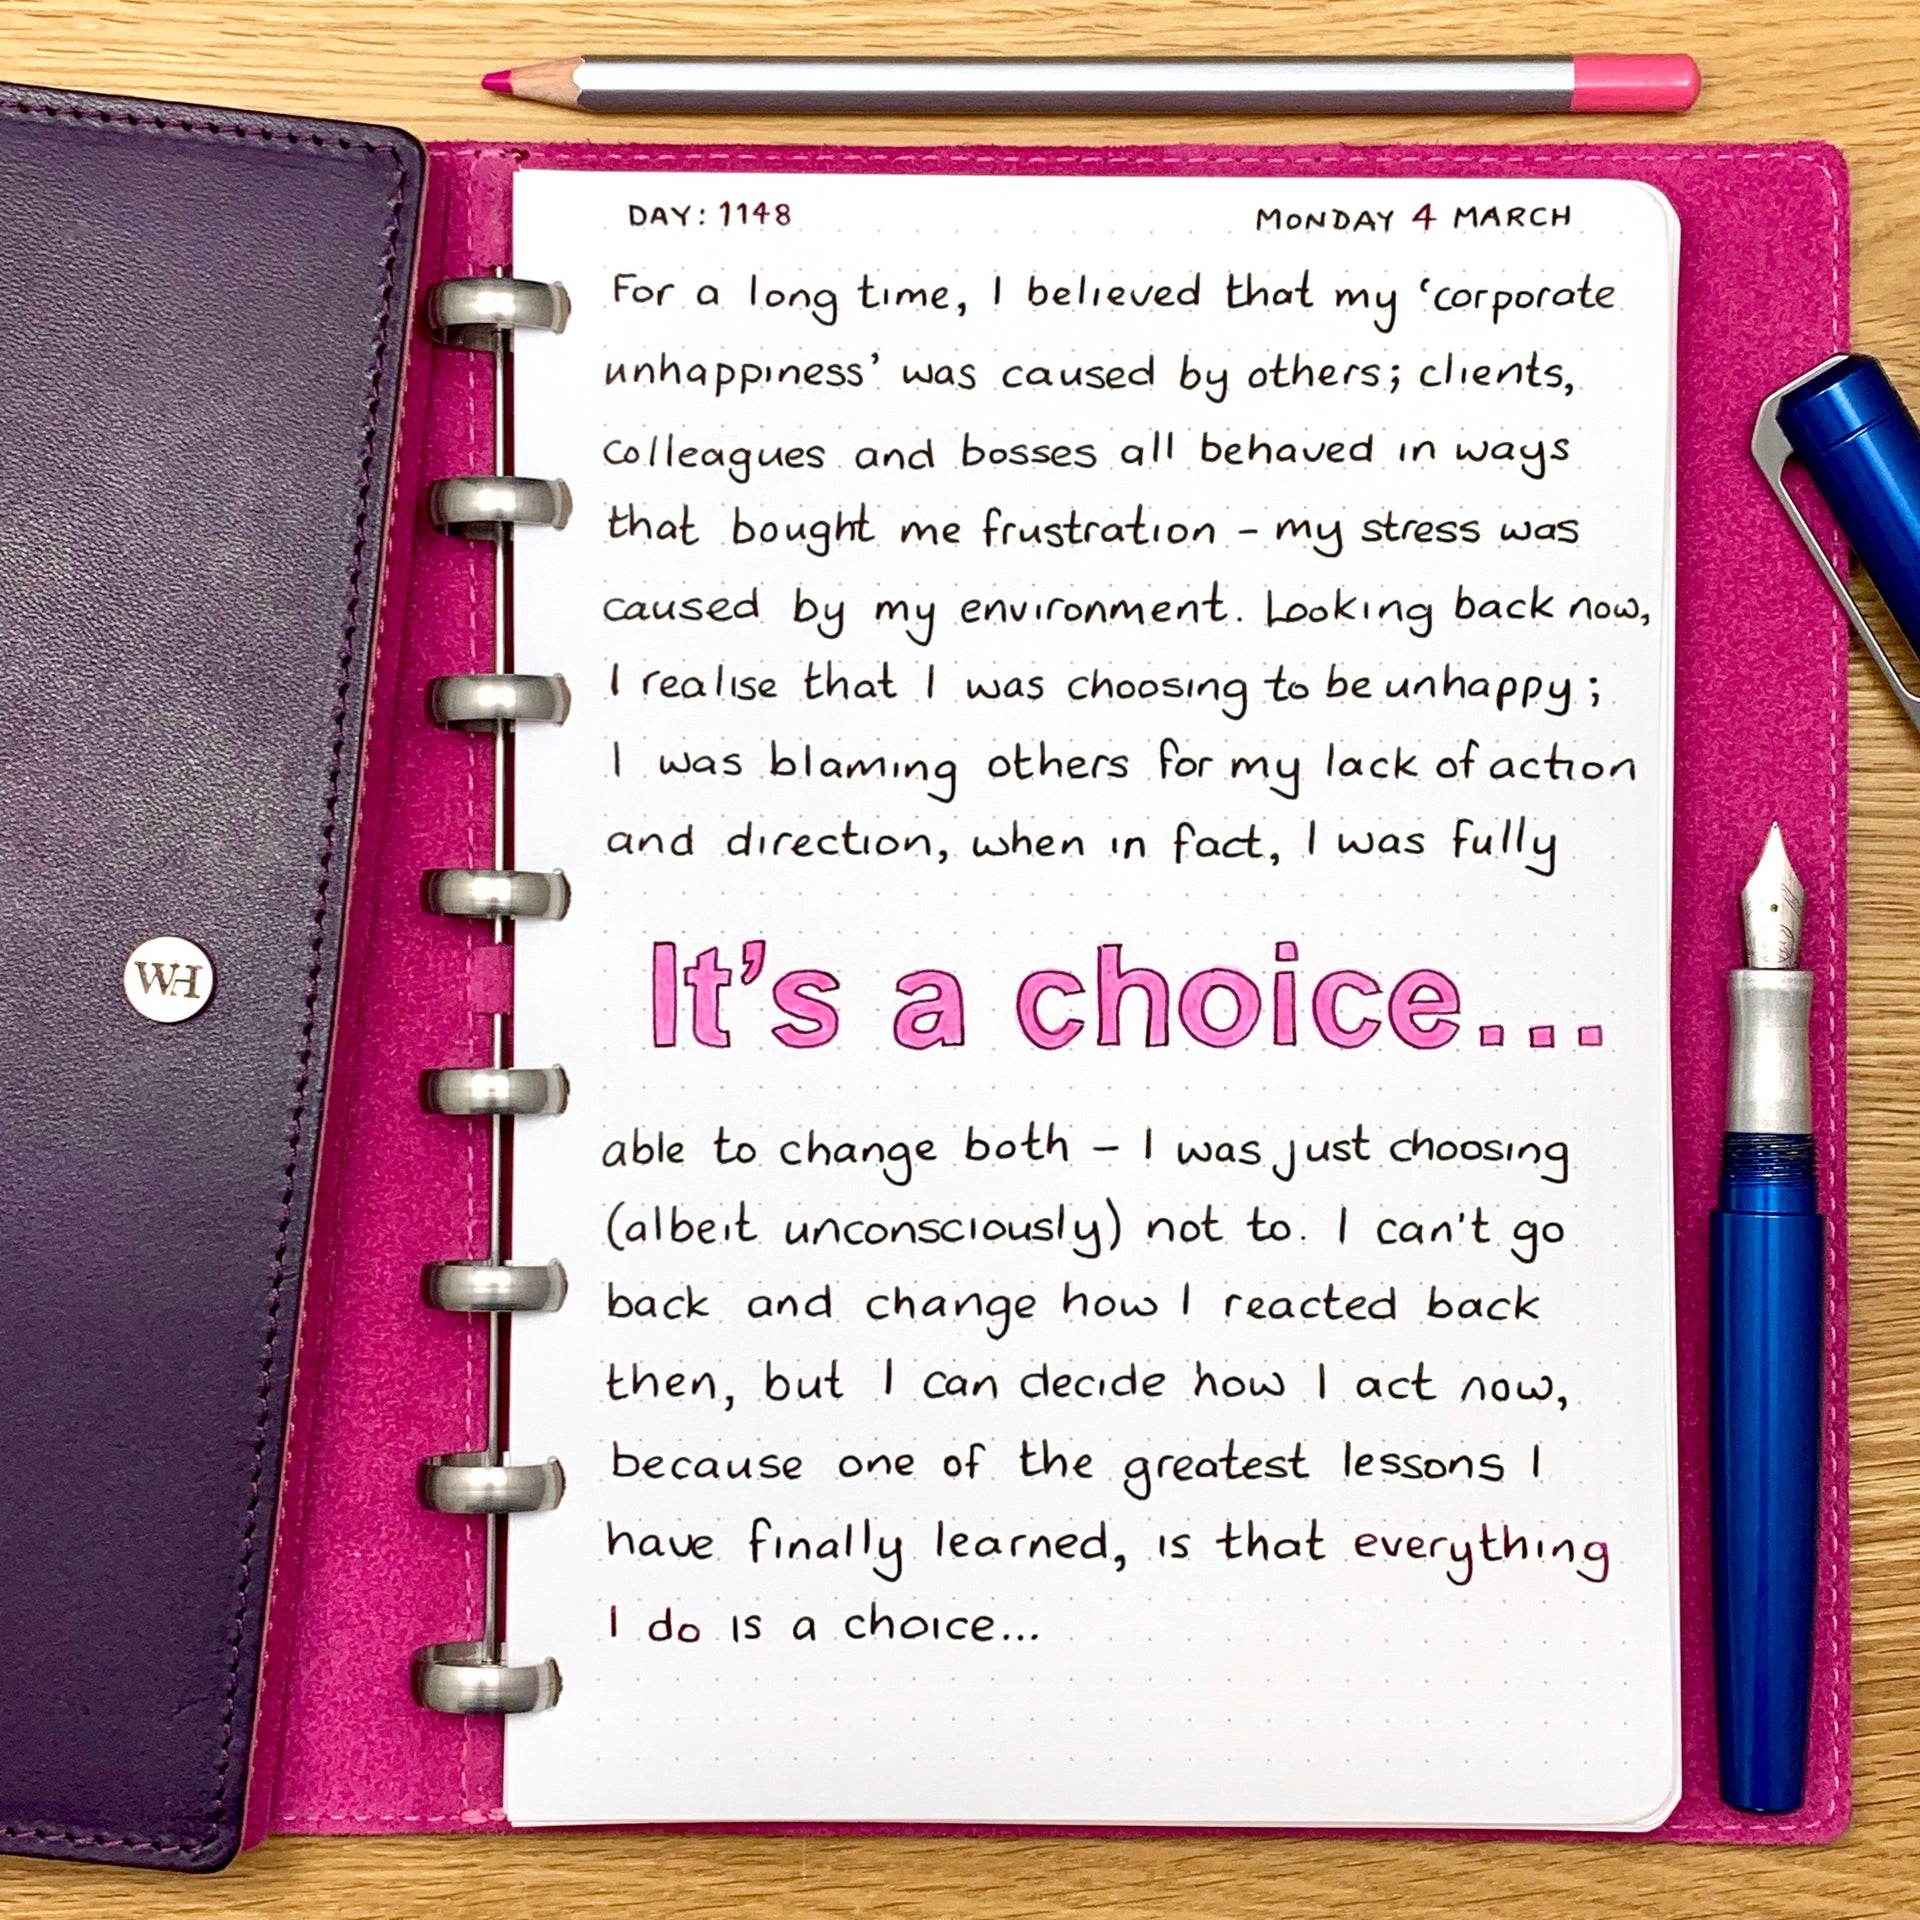 DAY: 1148 MONDAY 4 MARCH
For a long time, I believed that my ‘corporate
unhappiness’ was caused by others; clients,
colleagues and bosses all behaved in ways
that bought me frustration – my stress was
caused by my environment. Looking back now,
I realise that I was choosing to be unhappy;
I was blaming others for my lack of action
and direction, when in fact, I was fully
It's a choice...
able to change both – I was just choosing
(albeit unconsciously) not to. I can't go
back and change how I reacted back
then, but I can decide how I act now,
because one of the greatest lessons I
have finally learned, is that everything
I do is a choice...
WH